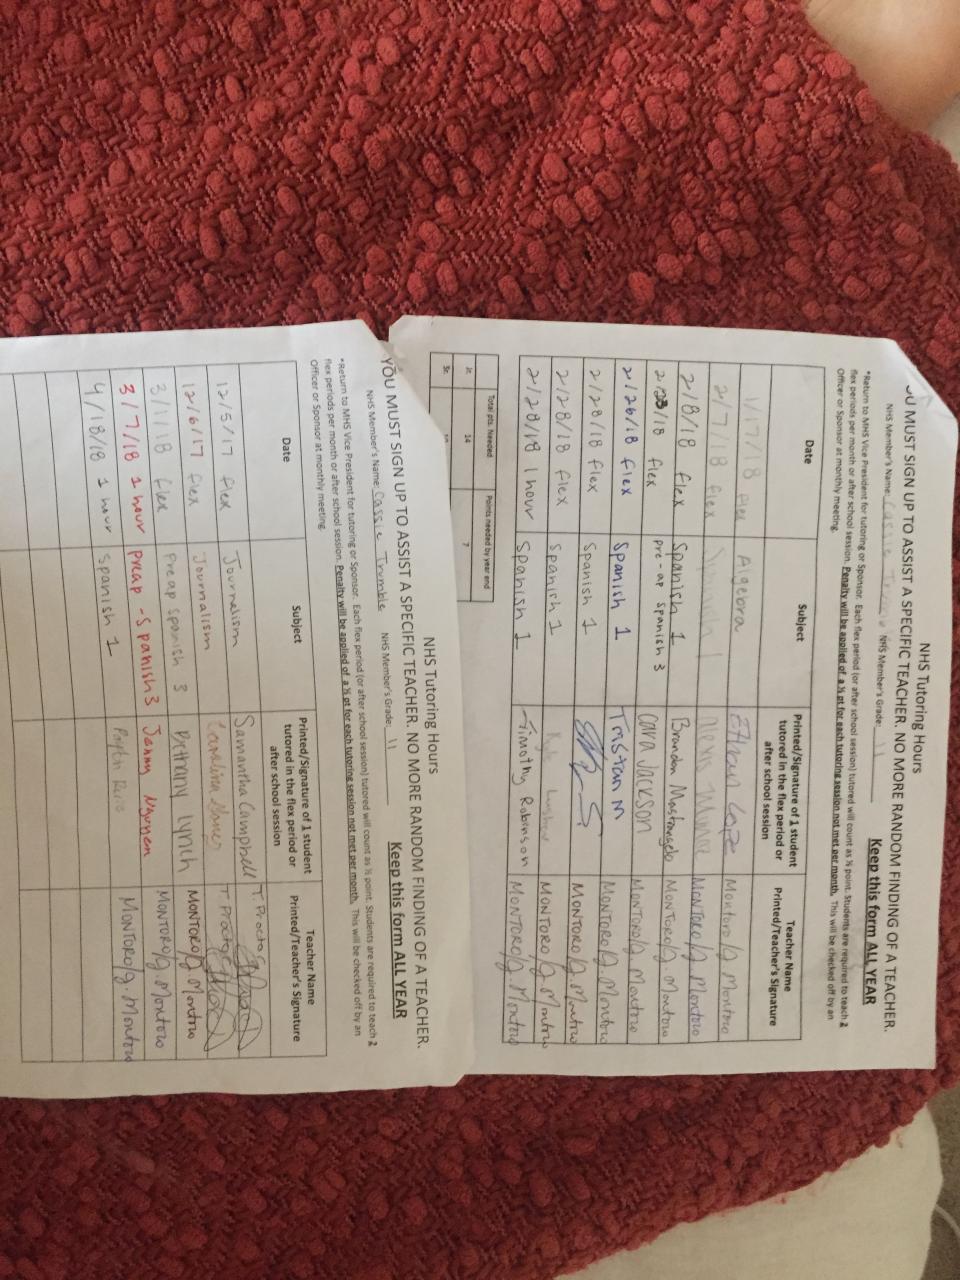 NHS Tutoring Hours
OU MUST SIGN UP TO ASSIST A SPECIFIC TEACHER. NO MORE RANDOM FINDING OF A TEACHER.
NHS Member's Name: Cassie NHS Member's Grade 11 Keep this form ALL YEAR
*Return to MHS Vice President for tutoring or Sponsor. Each flex period (or after school session) tutored will count as ½ point. Students are required to teach 2
flex periods per month or after school session. Penalty will be applied of a ½ pt for each tutoring session not met per month. This will be checked off by an
Officer or Sponsor at monthly meeting.
Date Subject Printed/Signature of 1 student tutored in the flex period or after school session Teacher Name Printed/Teacher's Signature
1/17/18 flex Algebra Ethan Montoro/J. Montoro
2/7/18 flex Spanish 1 MONTORO/J. Montoro
2/8/18 flex Spanish 1 Brandon Mastrangelo MONTORO/J. Montoro
2/23/18 flex pre-ap spanish 3 Cara Jackson MONTORO/J. Montoro
2/26/18 flex Spanish 1 Tristan M MONTORO/J. Montoro
2/28/18 flex Spanish 1 MONTORO/J. Montoro
2/28/18 flex Spanish 1 MONTORO/J. Montoro
2/28/18 1 hour Spanish 1 Timothy Robinson MONTORO/J. Montoro
Total pts. Needed Points needed by year end
Jr. 14 7
Sr.
NHS Tutoring Hours
YOU MUST SIGN UP TO ASSIST A SPECIFIC TEACHER. NO MORE RANDOM FINDING OF A TEACHER.
NHS Member's Name: Cassie Trumble NHS Member's Grade 11 Keep this form ALL YEAR
*Return to MHS Vice President for tutoring or Sponsor. Each flex period (or after school session) tutored will count as ½ point. Students are required to teach 2
flex periods per month or after school session. Penalty will be applied of a ½ pt for each tutoring session not met per month. This will be checked off by an
Officer or Sponsor at monthly meeting.
Date Subject Printed/Signature of 1 student tutored in the flex period or after school session Teacher Name Printed/Teacher's Signature
12/5/17 flex Journalism Samantha Campbell T. Proctor
12/6/17 flex Journalism Carolina T. Proctor
3/1/18 flex Preap Spanish 3 Bethany Lynch MONTORO/J. Montoro
3/7/18 1 hour preap - Spanish 3 Jenny Nguyen MONTORO/J. Montoro
4/18/18 1 hour Spanish 1 MONTORO/J. Montoro